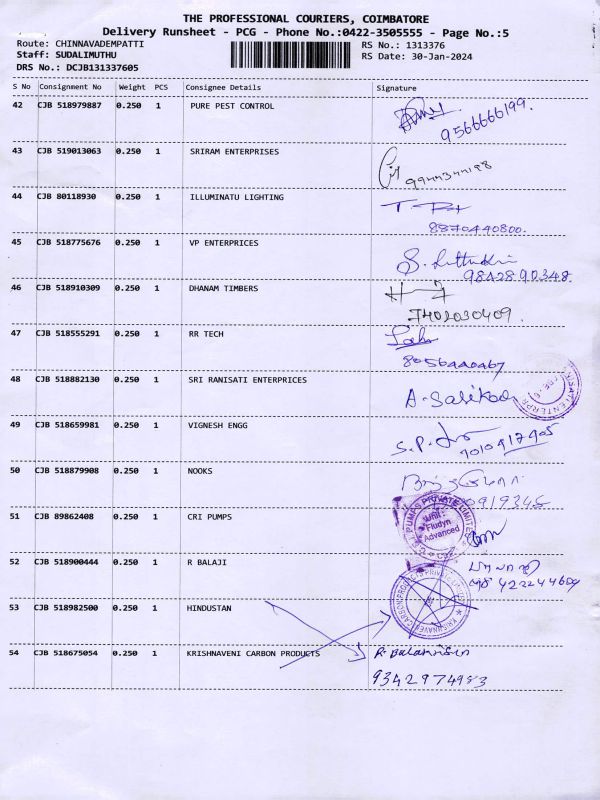 THE PROFESSIONAL COURIERS, COIMBATORE
Delivery Runsheet - PCG - Phone No.:0422-3505555 - Page No.:5
Route: CHINNAVADEMPATTI RS No.: 1313376
Staff: SUDALIMUTHU RS Date: 30-Jan-2024
DRS No.: DCJB131337605
S No Consignment No Weight PCS Consignee Details Signature
42 CJB 518979887 0.250 1 PURE PEST CONTROL
9566666199
43 CJB 519013063 0.250 1 SRIRAM ENTERPRISES
44 CJB 80118930 0.250 1 ILLUMINATU LIGHTING
8870440800.
45 CJB 518775676 0.250 1 VP ENTERPRICES
9842890348
46 CJB 518910309 0.250 1 DHANAM TIMBERS
7402030409.
47 CJB 518555291 0.250 1 RR TECH
8056440467
48 CJB 518882130 0.250 1 SRI RANISATI ENTERPRICES
49 CJB 518659981 0.250 1 VIGNESH ENGG
50 CJB 518879908 0.250 1 NOOKS
51 CJB 89862408 0.250 1 CRI PUMPS
PUMPS PRIVATE LIMITED
Unit:
Fludyn
Advanced
52 CJB 518900444 0.250 1 R BALAJI
53 CJB 518982500 0.250 1 HINDUSTAN
54 CJB 518675054 0.250 1 KRISHNAVENI CARBON PRODUCTS
9342974983